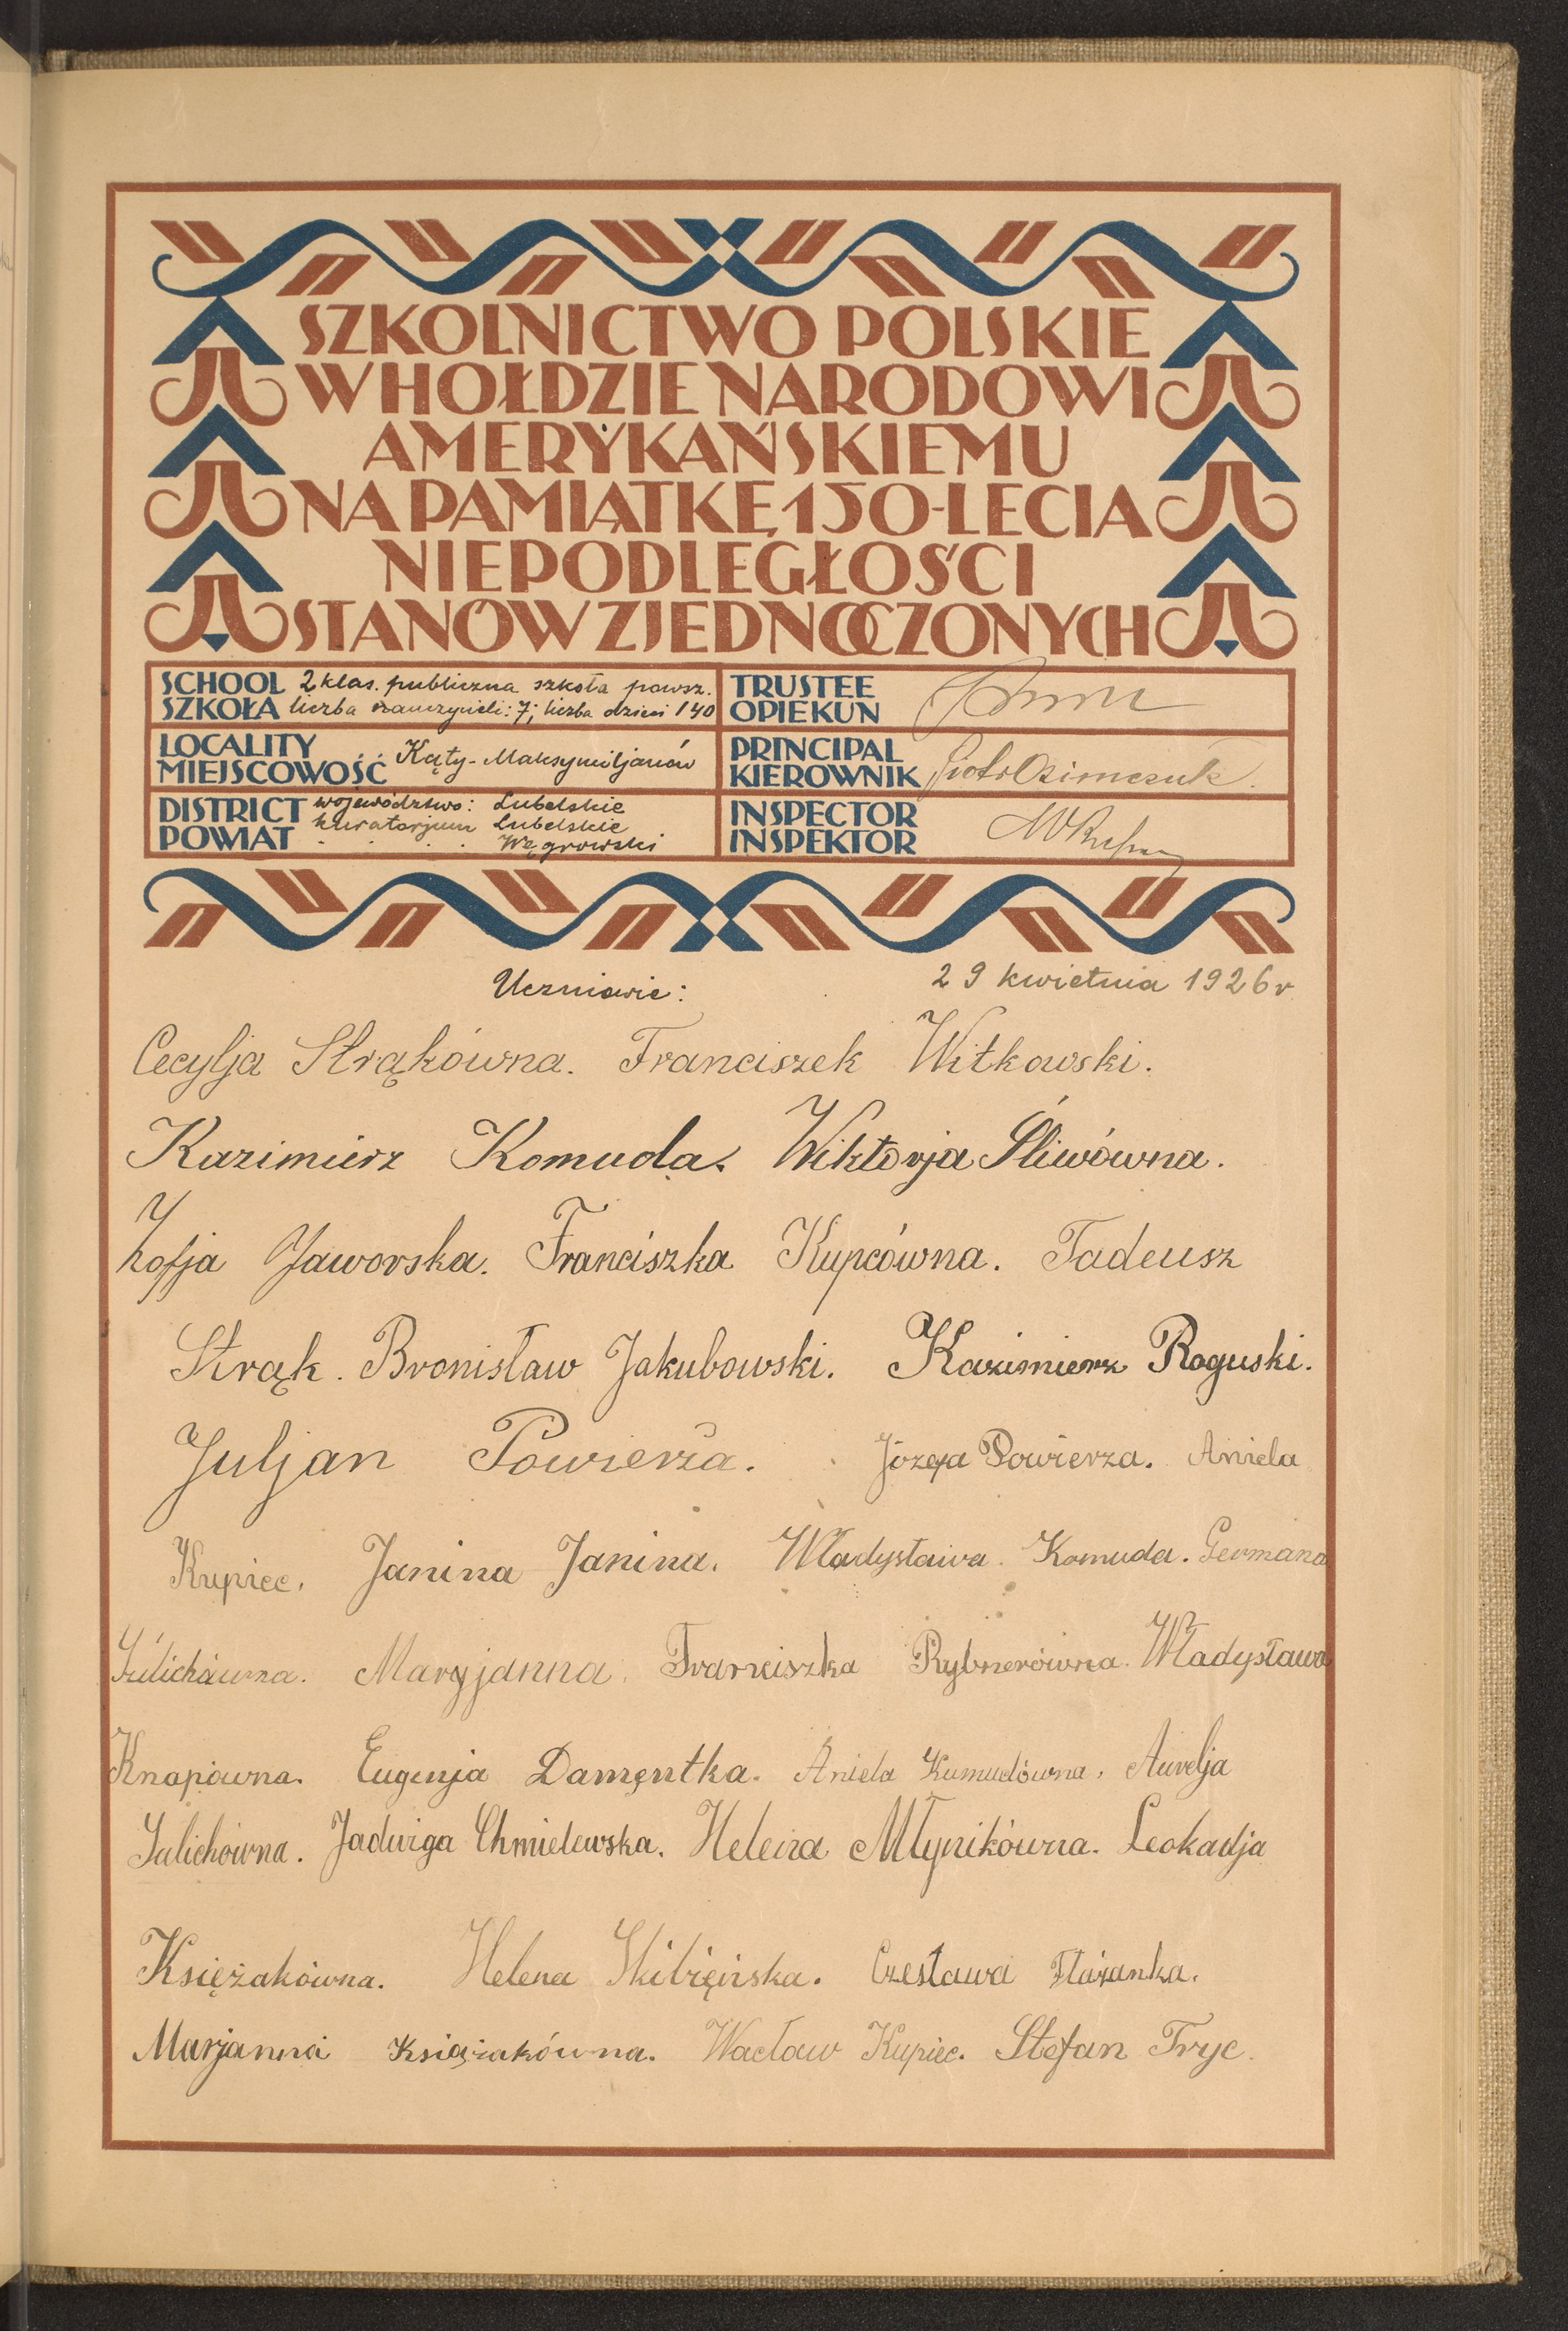 SZKOLNICTWO POLSKIE
W HOŁDZIE NARODOWI
AMERYKAŃSKIEMU
NA PAMIĄTKĘ 150-LECIA
NIEPODLEGŁOŚCI
STANÓW ZJEDNOCZONYCH
SCHOOL 2 klas. publiczna szkoła powsz.
SZKOŁA liczba nauczycieli: 7; liczba dzieci 140
TRUSTEE
OPIEKUN
LOCALITY
MIEJSCOWOŚĆ Kąty-Maksymiljanów
PRINCIPAL
KIEROWNIK Piotr Ozimczuk
DISTRICT województwo: Lubelskie
kuratorjum Lubelskie
POWIAT . . . . Węgrowski
INSPECTOR
INSPEKTOR
Uczniowie: 29 kwietnia 1926 r
Cecylja Strąkówna. Franciszek Witkowski.
Kazimierz Komuda. Wiktorja Śliwówna.
Zofja Jaworska. Franciszka Kupcówna. Tadeusz
Strąk. Bronisław Jakubowski. Kazimierz Roguski.
Juljan Powierża. Józefa Powierza. Aniela
Kupiec. Janina Janina. Władysława. Komuda. Germana
Sulichówna. Maryjanna. Franciszka Rybnerówna. Władysława
Knapówna. Eugenja Damęntka. Aniela Kumudówna. Aurelja
Sulichówna. Jadwiga Chmielewska. Helena Młynikówna. Leokadja
Księżakówna. Helena Skibięińska. Czesława
Marjanna Książakówna. Wacław Kupiec. Stefan Tryc.